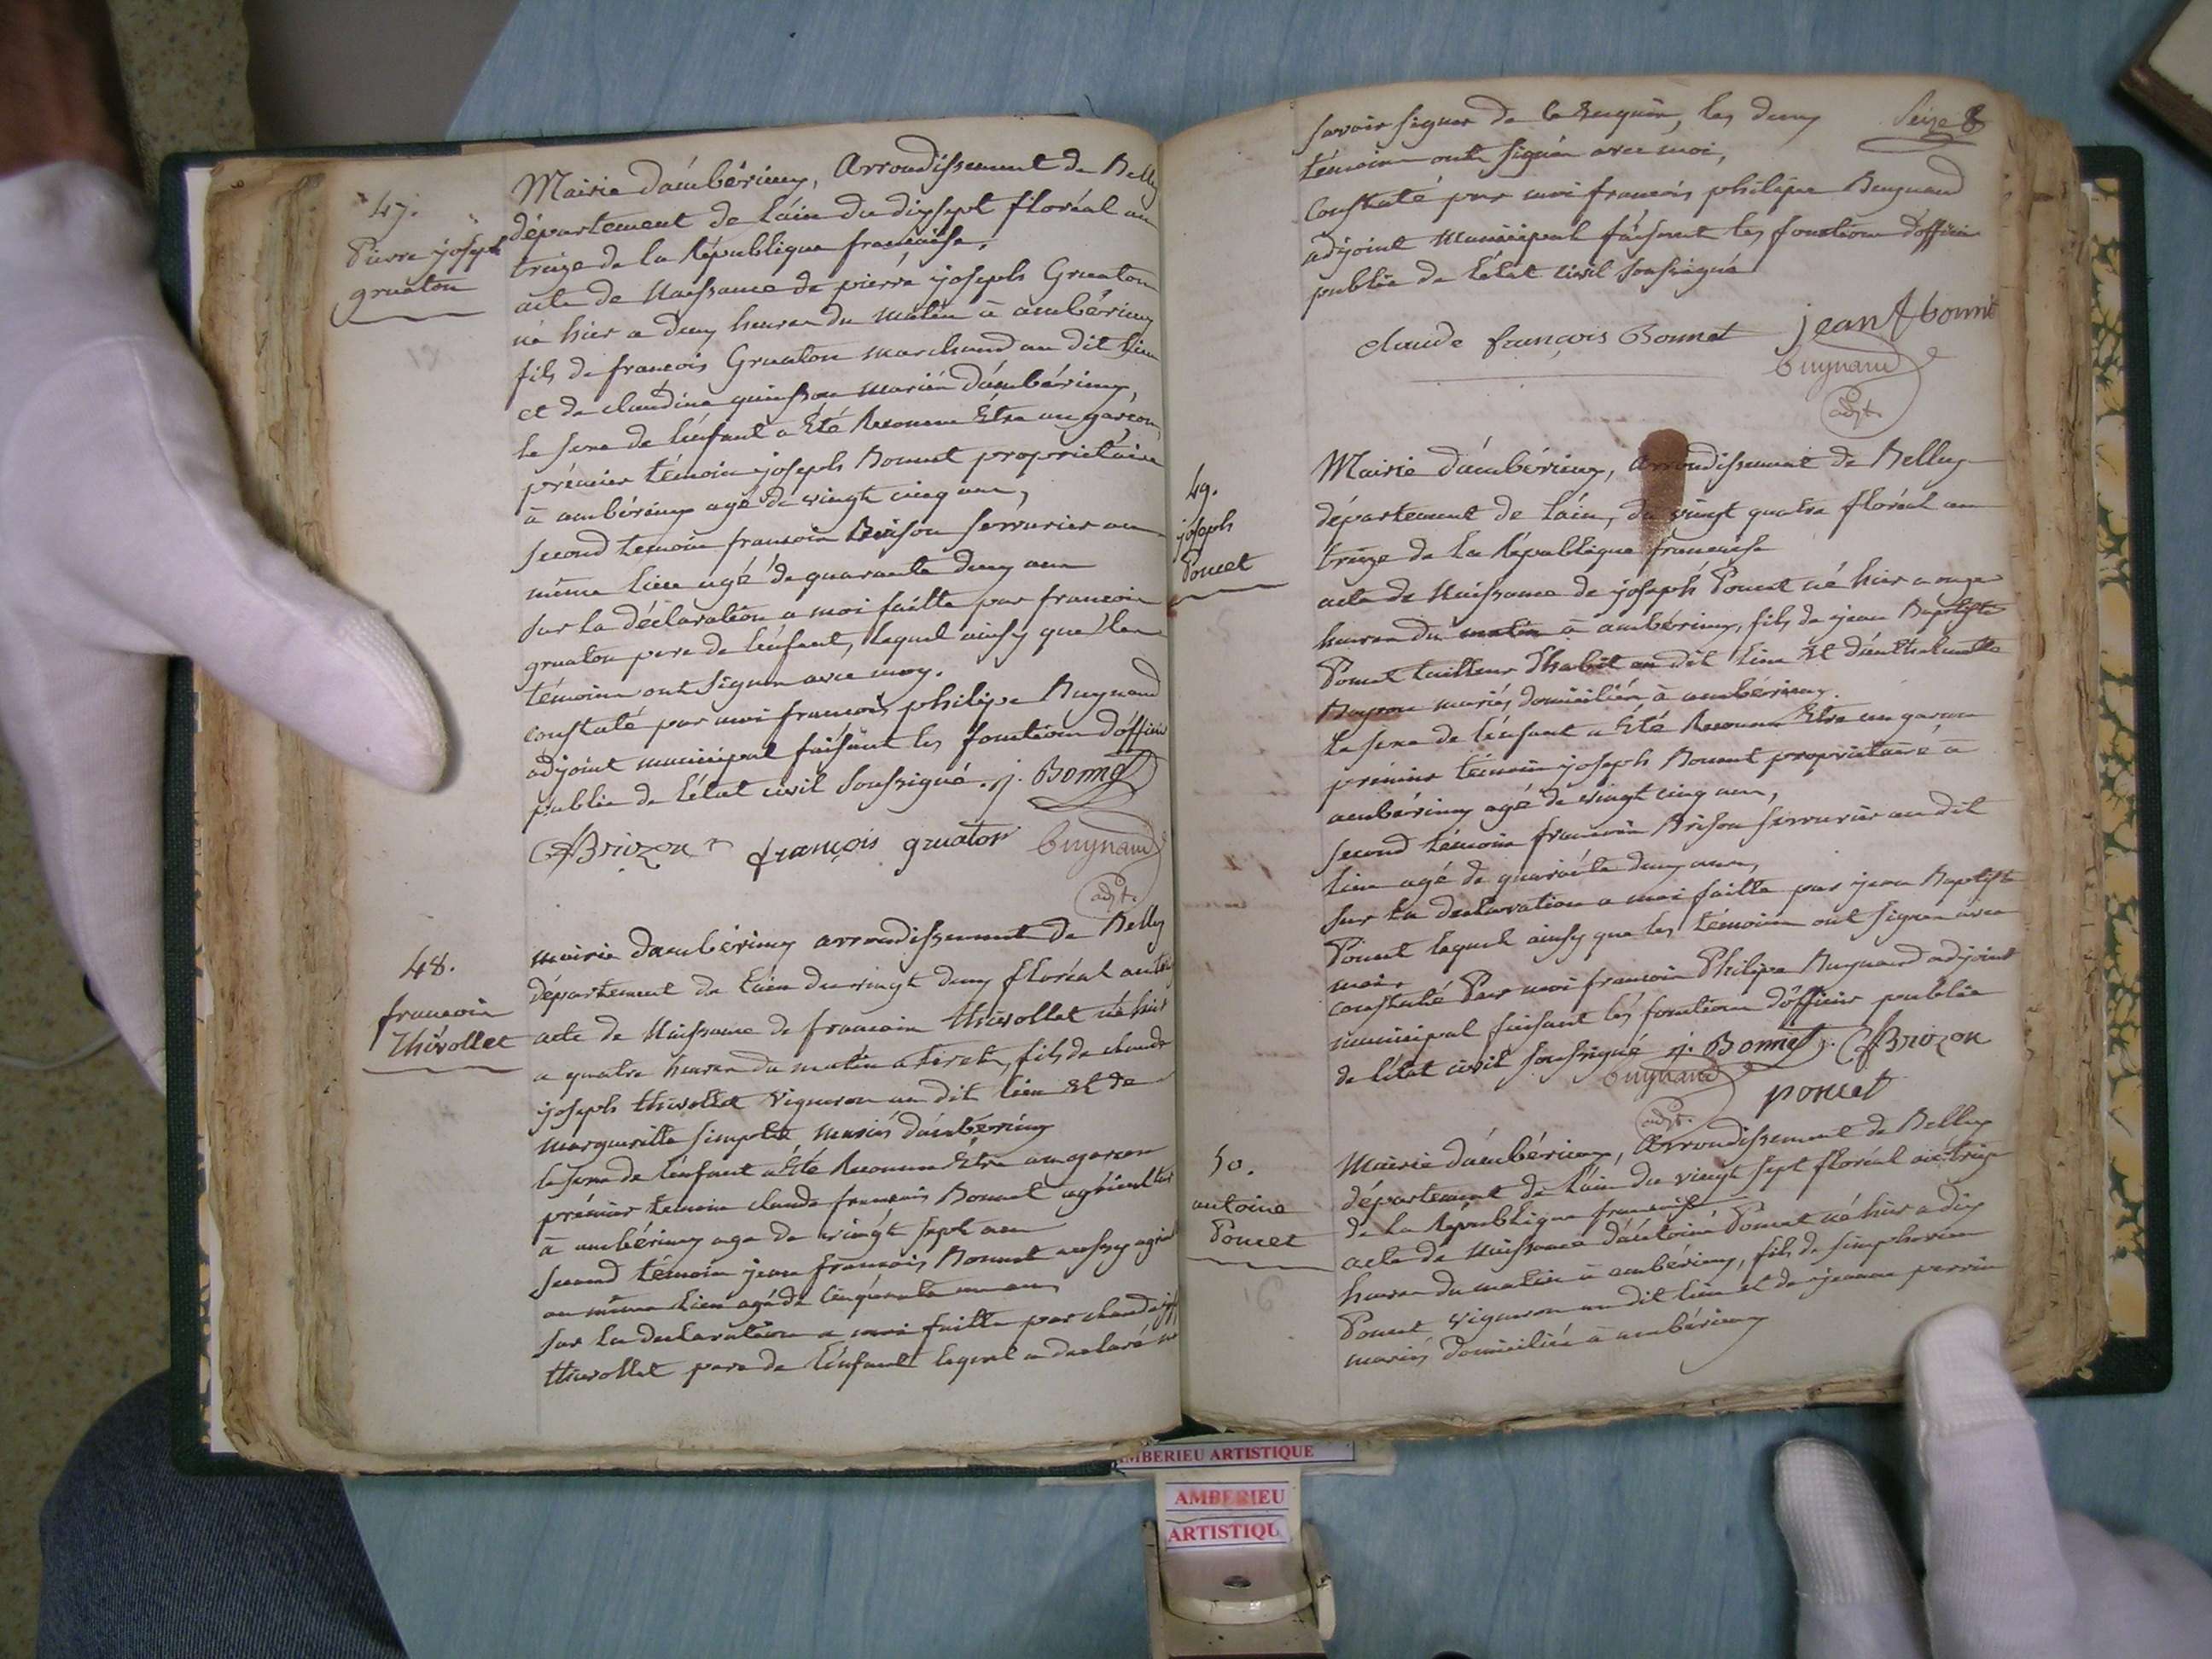 47.
Pierre joseph
gruaton
Mairie d'ambérieux, Arrondissement de Belley
département de l'ain du dixsept floréal an
treize de la République française.
acte de Naissance de pierre joseph Gruaton
né hier a deux heures du matin à ambérieux
fils de francois Gruaton marchand au dit lieu
et de claudine mariés d'ambérieux,
le sexe de l'enfant a Eté Reconnu Etre un garçon,
prémier témoin joseph Bonnet propriétaire
à ambérieux agé de vingt cinq ans,
second temoin francois Brison serrurier au
même lieu agé de quarante deux ans
sur la déclaration a moi faitte par francois
gruaton pere de l'enfant, lequel ainsy que les
témoins ont signés avec moy.
constaté par moi francois philipe Buynand
adjoint municipal faisant les fonctions d'officier
public de l'état civil soussigné. j. Bonnet
Brizon françois gruaton buynand
adjt.
48.
francois
Thivollet
mairie d'ambérieux arrondissement de Belley
département de l'ain du vingt deux floréal an treize
acte de Naissance de francois thivollet né hier
a quatre heures du matin a fils de claude
joseph thivollet vigneron au dit lieu et de
marguerite mariés d'ambérieux
le sexe de l'enfant a Eté Reconnu Etre un garcon
prémier temoin claude francois Bonnet agriculteur
à ambérieux age de vingt sept ans
second témoin jean francois Bonnet aussy
au même lieu agé de cinquante un ans
sur la declaration a moi faitte par claude
thivollet pere de l'enfant lequel a declaré ne
seize 8
savoir signer de ce Requis, les deux
témoins ont signés avec moi,
Constaté par moi francois philipe Buynand
adjoint Municipal faisant les fonctions d'officier
public de l'état civil soussigné
claude françois Bonnet jean f bonnet
buynand
adjt.
49.
joseph
Poncet
Mairie d'ambérieux, arrondissement de Belley
département de l'ain, du vingt quatre floréal an
treize de la République française
acte de Naissance de joseph Poncet né hier a onze
heures du matin à ambérieux, fils de jean Baptiste
Poncet tailleur d'habit au dit lieu et d'enthelmette
mariés domiciliés à ambérieux.
le sexe de l'enfant a Eté Reconnu Etre un garcon
prémier témoin joseph Bonnet propriétaire à
ambérieux agé de vingt cinq ans,
second témoin francois Brison serrurier au dit
lieu agé de quarante deux ans,
sur la declaration a moi faitte par jean Baptiste
Poncet lequel ainsy que les témoins ont signés avec
moi.
constaté Par moi francois Philipe Buynand adjoint
municipal faisant les fonctions d'officier public
de l'état civil soussigné j. Bonnet. Brizon
buynand poncet
adjt.
50.
antoine
Poncet
Mairie d'ambérieux, Arrondissement de Belley
département de l'ain du vingt sept floréal an treize
de la République française
acte de Naissance d'antoine Poncet né hier a dix
heures du matin à ambérieux, fils de simphorien
Poncet vigneron au dit lieu et de jeanne perrin
mariés domiciliés à ambérieux
AMBERIEU ARTISTIQUE
AMBERIEU
ARTISTIQU